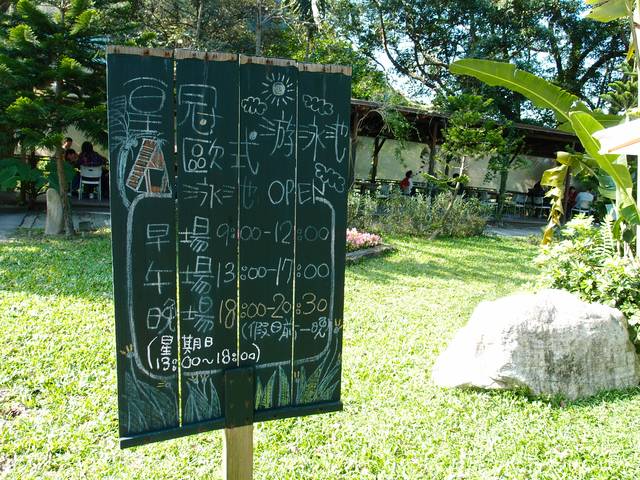 星冠歐式游泳池
泳池 OPEN
早場 9:00-12:00
午場 13:00-17:00
晚場 18:00-20:30
(假日前一晚)
(星期日
13:00~18:00)